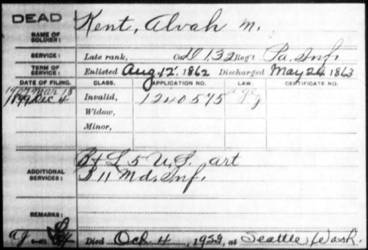 DEAD
NAME OF SOLDIER: Kent, Alvah M.
SERVICE: Late rank, Co. D 132 Reg't Pa. Inf.
TERM OF SERVICE: Enlisted Aug. 12, 1862 Discharged May 24, 1863
DATE OF FILING. CLASS. APPLICATION NO. LAW. CERTIFICATE NO.
1899 Dec 4 Invalid, 1240575
Widow,
Minor,
ADDITIONAL SERVICES: Bt L 5 U.S. art
11 Md. Inf.
REMARKS:
Died Oct. 4, 1922, at Seattle Wash.